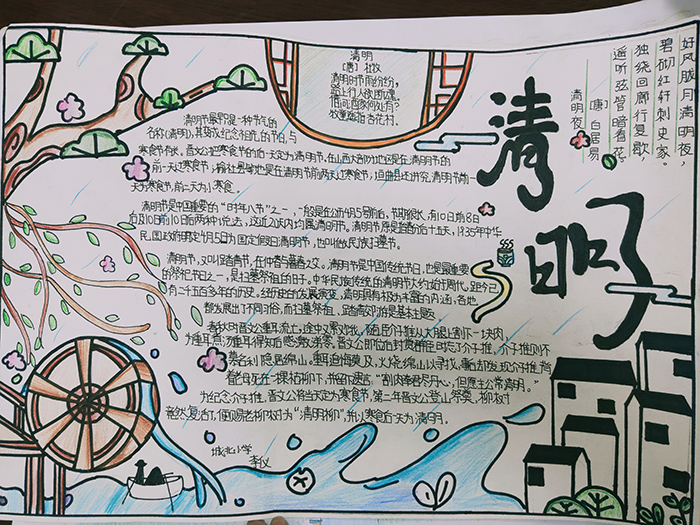 好风胧月清明夜，
碧砌红轩刺史家。
独绕回廊行复歇，
遥听弦管暗看花。
[唐]白居易
清明夜
清明
清明
[唐] 杜牧
清明时节雨纷纷，
路上行人欲断魂
借问酒家何处有？
牧童遥指杏花村。
清明节最早是一种节气的
名称(清明)，其变成纪念祖先的节日，与
寒食节有关，晋文公把寒食节的后一天定为清明节。在山西大部分地区是在清明节的
前一天过寒食节；榆社县等地是在清明节前两天过寒食节；垣曲县还讲究清明节前一
天为寒食节，前二天为小寒食
清明节是中国重要的“时年八节”之一，一般是在公历4月5号前后，节期很长，有10日前8日
后及10日前10日后两种说法，这近20天内均属清明节。清明节原是指春分后十五天，1935年中华
民国政府明定4月5日为国定假日清明节，也叫做民族扫墓节。
清明节，又叫踏青节，在仲春与暮春之交。清明节是中国传统节日，也是最重要
的祭祀节日之一，是扫墓祭祖的日子。中华民族传统的清明节大约始于周代，距今已
有二千五百多年的历史。经历史的发展演变，清明具有极为丰富的内涵，各地
都发展出了不同习俗，而扫墓祭祖、踏青郊游是基本主题
春秋时晋文公重耳流亡，途中又累又饿，随臣介子推从大腿上割下一块肉
为重耳煮汤，重耳得知后感激涕零。晋文公即位后封赏群臣时忘了介子推，介子推则不
慕名利，隐居绵山。重耳追悔莫及，火烧绵山以寻找，最后却发现介子推背
着母死在一棵枯柳下，并留下遗言：“割肉奉君尽丹心，但愿主公常清明。”
为纪念介子推，晋文公将当天定为寒食节，第二年晋文公登山祭奠，柳树
竟然复活了，便赐老柳树为“清明柳”，并以寒食后一天为清明。
城北小学
李仪